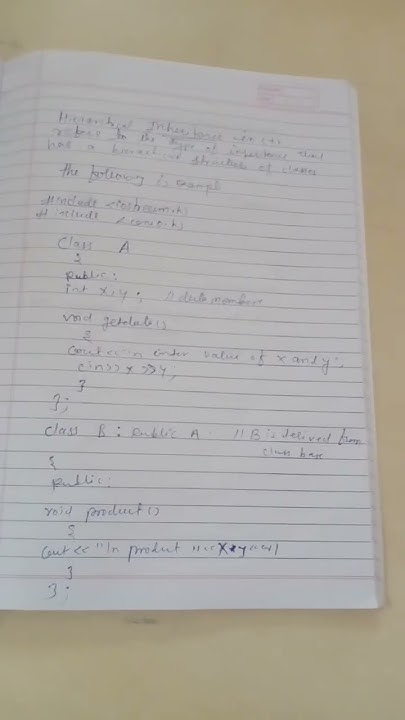 Hierarchical Inheritance in C++
refers to the type of inheritance that
has a hierarchical structure of classes
the following is example
#include <iostream.h>
#include <conio.h>
Class A
{
public:
int x,y; // data members
void getdata()
{
cout<<"\n enter value of x and y:;
cin>>x>>y;
}
};
class B : public A // B is derived from
class base
{
public:
void product()
{
cout<<"\n product "<<x*y
}
};